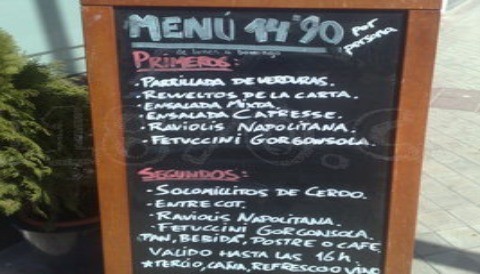 MENÚ 14'90 por persona
de lunes a Domingo
PRIMEROS:
. PARRILLADA DE VERDURAS.
. REVUELTOS DE LA CARTA.
. ENSALADA MIXTA.
. ENSALADA CAPRESSE.
. RAVIOLIS NAPOLITANA.
. FETUCCINI GORGONSOLA.
SEGUNDOS:
. SOLOMILLITOS DE CERDO.
. ENTRECOT.
. RAVIOLIS NAPOLITANA.
. FETUCCINI GORGONSOLA.
PAN, BEBIDA, POSTRE O CAFE
VALIDO HASTA LAS 16h
*TERCIO, CAÑA, REFRESCO O VINO